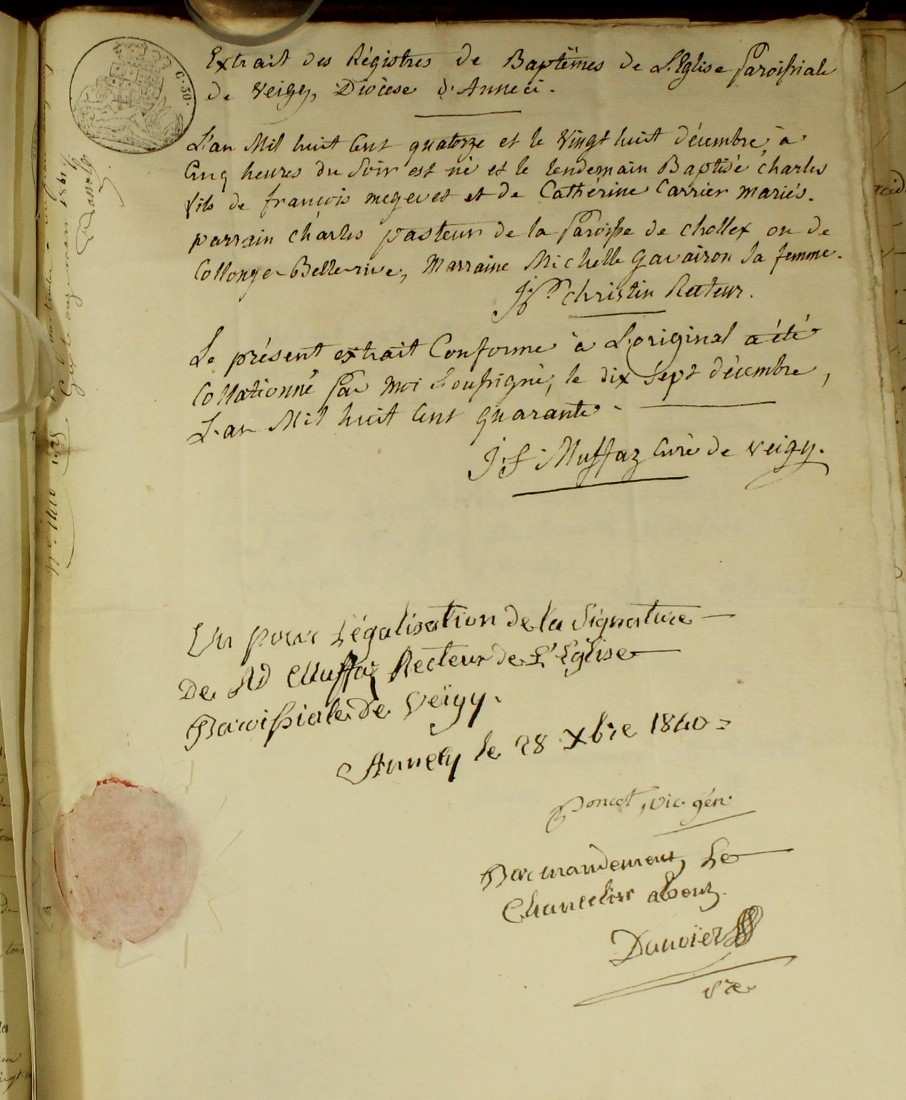 Extrait des Régistres de Baptêmes de L'Eglise Paroissiale
de Veigy, Diocèse d'Anneci.
L'an Mil huit Cent quatorze et le vingt huit décembre à
Cinq heures du Soir est né et le lendemain Baptisé charles
fils de françois megevet et de Cathérine Carrier mariés.
parrain chârles pasteur de la Paroisse de chollex ou de
Collonge-Bellerive, Marraine Michelle Gavairon sa femme.
christin Recteur.
Le présent extrait Conforme à L'original a été
Collationné par moi Soussigné, le dix Sept décembre,
L'an Mil huit Cent quarante.
J. F. Muffaz Curé de Veigy.
Vu pour Légalisation de la Signature
De Rd Muffaz Recteur de L'Eglise
Paroissiale de Veïgy.
Annecy le 28 Xbre 1840
Poncet, Vic. gén.
Par mandement Le
Chancelier
C. 50.